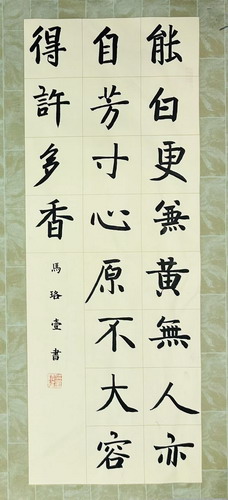 能白更兼黃無人亦
自芳寸心原不大容
得許多香
馬珞壹書